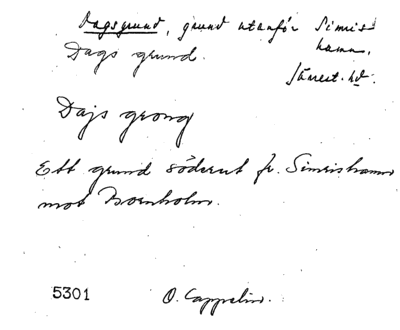 Dagsgrund, grund utanför Simris-
hamn,
Dags grund.
Järrest. hd.
Dajs grong
Ett grund söderut fr. Simrishamn
mot Bornholm.
5301 O. Cappelin.